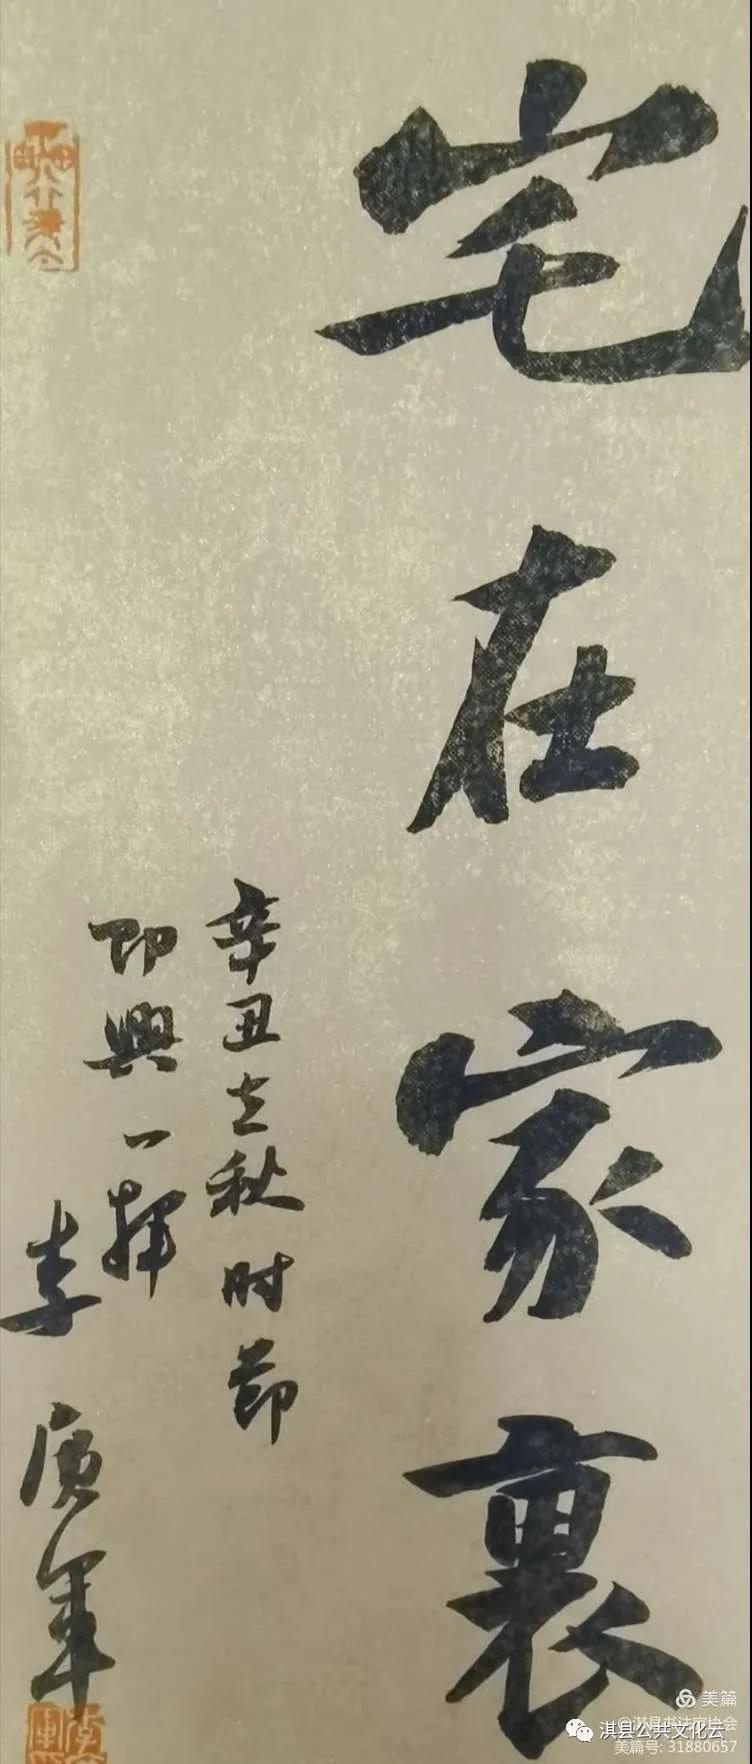 宅在家裏
辛丑立秋时節
即興一揮
李广軍
美篇
@淇县书法家协会
淇县公共文化云
美篇号: 31880657